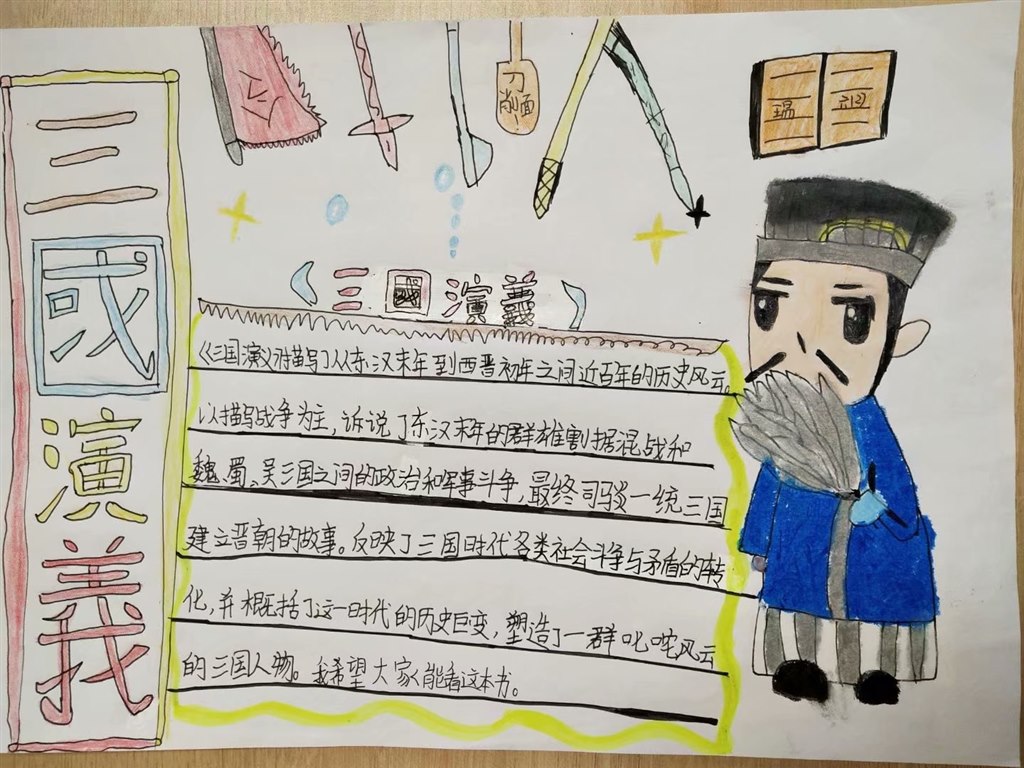 三國演義
刀削面
《三國演義》
《三国演义》描写了从东汉末年到西晋初年之间近百年的历史风云。
以描写战争为主，诉说了东汉末年的群雄割据混战和
魏、蜀、吴三国之间的政治和军事斗争，最终司马炎一统三国
建立晋朝的故事。反映了三国时代各类社会斗争与矛盾的转
化，并概括了这一时代的历史巨变，塑造了一群叱咤风云
的三国人物。我希望大家能看这本书。